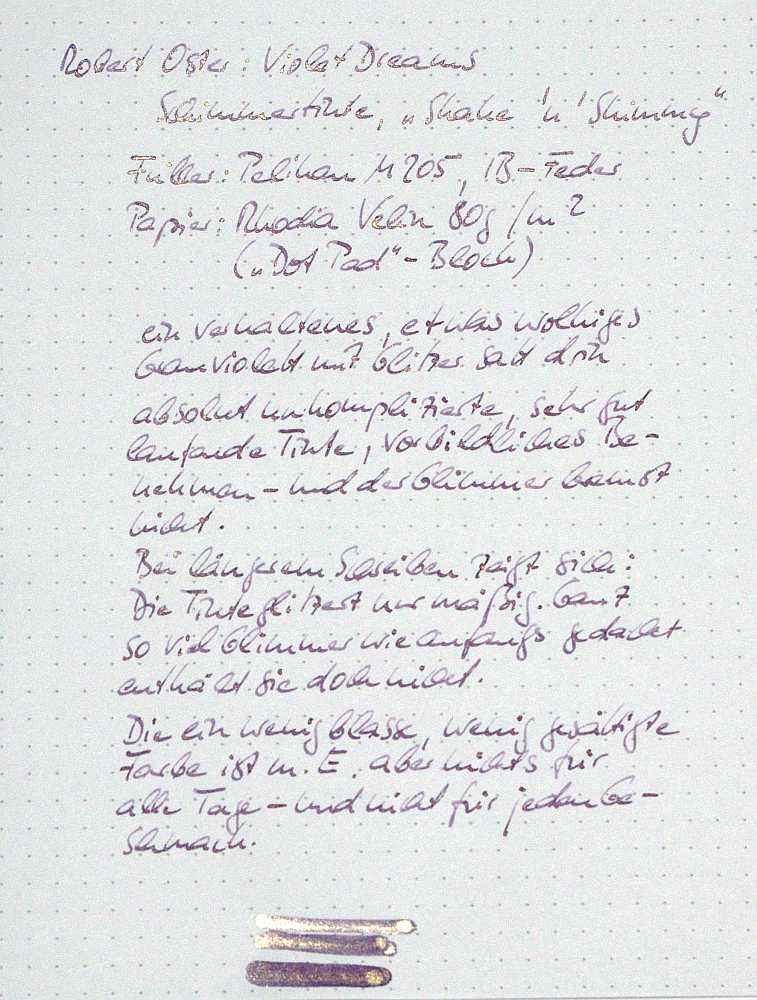 Robert Oster: Violet Dreams
Schimmertinte, „Shake 'n' Shimmy“
Füller: Pelikan M205, IB-Feder
Papier: Rhodia Velin 80g/m²
(„Dot Pad“-Block)
ein verhaltenes, etwas wolkiges
Grauviolett mit Glitzer satt drin
absolut unkomplizierte, sehr gut
laufende Tinte, vorbildliches Be-
nehmen - und der Glimmer bremst
nicht.
Bei längerem Schreiben zeigt sich:
Die Tinte glitzert nur mäßig. Ganz
so viel Glimmer wie anfangs gedacht
enthält sie doch nicht.
Die ein wenig blasse, wenig gesättigte
Farbe ist m. E. aber nichts für
alle Tage - und nicht für jeden Ge-
schmack.